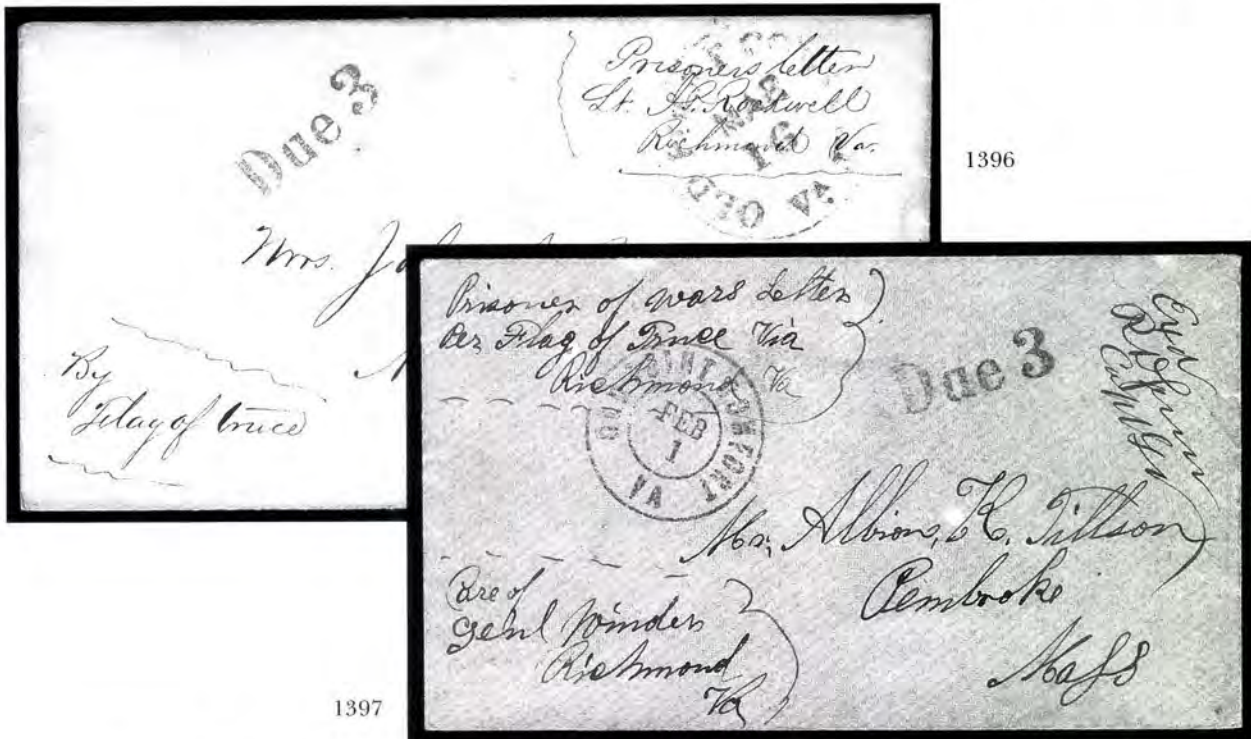 Due 3
Prisoners letter
Lt. A.P. Rockwell
Richmond Va.
OLD VA
MAR
16
1396
Mrs. Jo
By
Flag of truce
Prisoner of wars Letter
Per Flag of Truce Via
Richmond Va
OLD POINT COMFORT VA
FEB
1
Due 3
Exd
Mr. Albion, K. Tillson
Pembroke
Mass
Care of
Genl Winder
Richmond
Va
1397